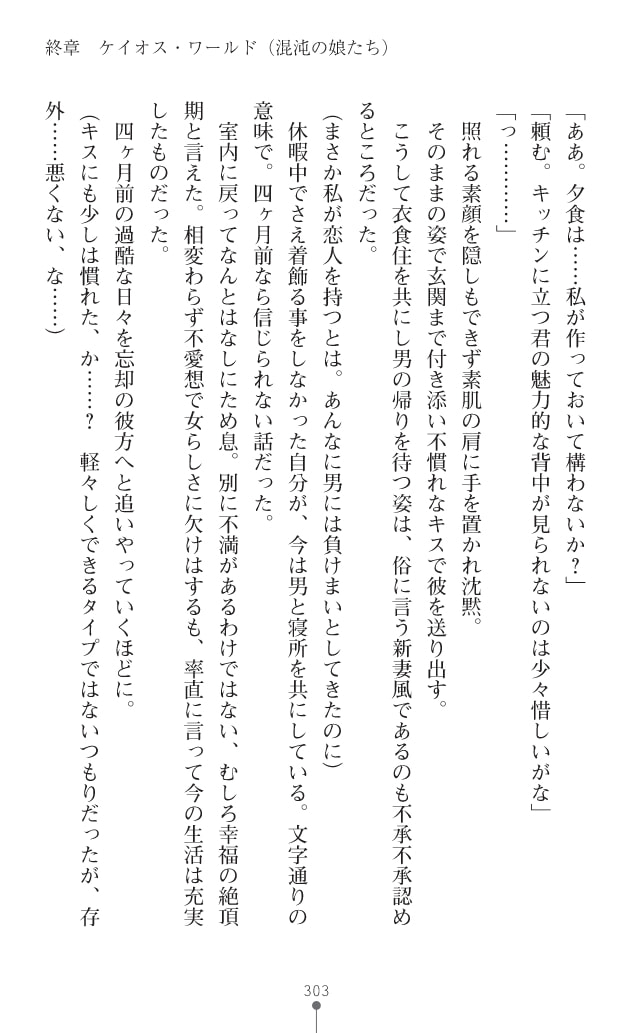 終章　ケイオス・ワールド（混沌の娘たち）
「ああ。夕食は……私が作っておいて構わないか？」
「頼む。キッチンに立つ君の魅力的な背中が見られないのは少々惜しいがな」
「っ…………」
照れる素顔を隠しもできず素肌の肩に手を置かれ沈黙。
そのままの姿で玄関まで付き添い不慣れなキスで彼を送り出す。
こうして衣食住を共にし男の帰りを待つ姿は、俗に言う新妻風であるのも不承不承認め
るところだった。
（まさか私が恋人を持つとは。あんなに男には負けまいとしてきたのに）
休暇中でさえ着飾る事をしなかった自分が、今は男と寝所を共にしている。文字通りの
意味で。四ヶ月前なら信じられない話だった。
室内に戻ってなんとはなしにため息。別に不満があるわけではない、むしろ幸福の絶頂
期と言えた。相変わらず不愛想で女らしさに欠けはするも、率直に言って今の生活は充実
したものだった。
四ヶ月前の過酷な日々を忘却の彼方へと追いやっていくほどに。
（キスにも少しは慣れた、か……？　軽々しくできるタイプではないつもりだったが、存
外……悪くない、な……）
303